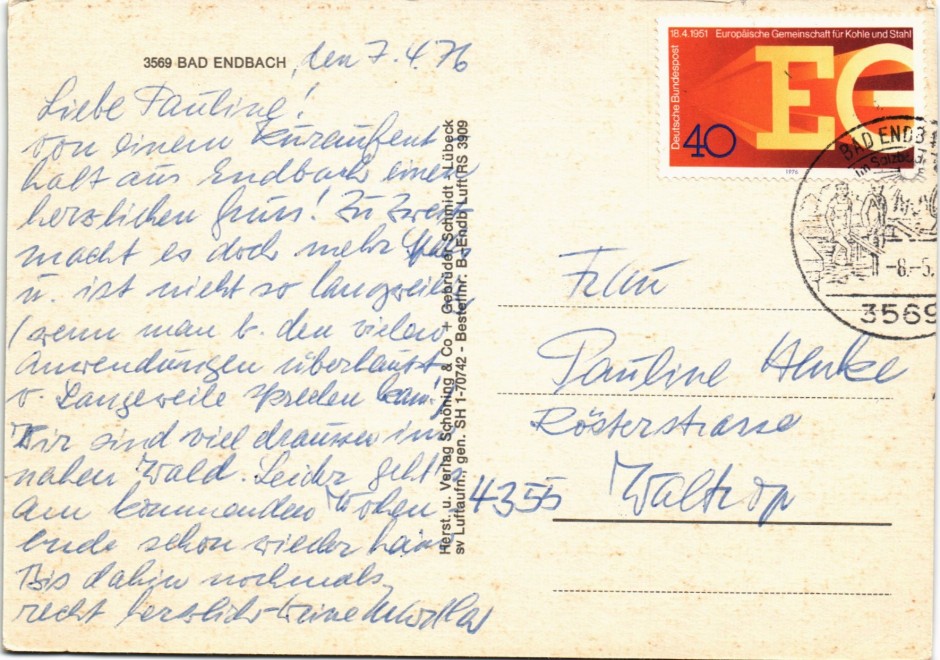 3569 BAD ENDBACH, den 7.4.76
Liebe Pauline!
von einem Kuraufent
halt aus Endbach einen
herzlichen Gruss! Zu zwei
macht es doch mehr Spaß
u. ist nicht so langweilig
(wenn man b. den vielen
Anwendungen überhaupt
v. Langeweile sprechen kann)
Wir sind viel draussen im
nahen Wald. Leider geht's
am kommenden Wochen
ende schon wieder
Bis dahin nochmals
recht herzlichst
Herst. u. Verlag Schöning & Co + Gebrüder Schmidt - Lübeck
sv Luftaufn., gen. SH 1-70742 - Bestellnr: B. Endb Luft RS 3909
18.4.1951 Europäische Gemeinschaft für Kohle und Stahl
Deutsche Bundespost
EG
40
1976
BAD ENDB
im Salzböde
-8.-5.
3569
Frau
Pauline Henke
Rösterstrasse
4355 Waltrop